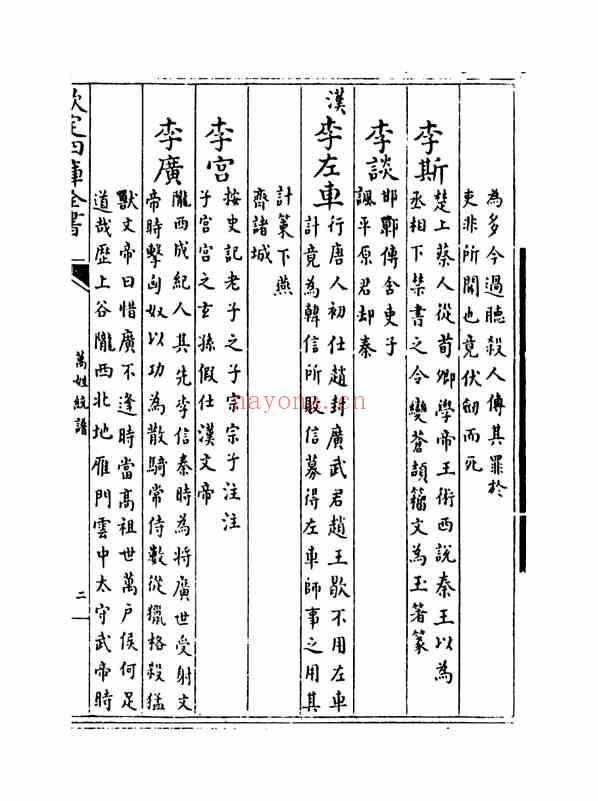 為多今過聽殺人傳其罪於
吏非所聞也竟伏劒而死
李斯
楚上蔡人從荀卿學帝王術西說秦王以為
丞相下禁書之令變蒼頡籀文為玉箸篆
李談
邯鄲傳舍吏子
諷平原君却秦
漢
李左車
行唐人初仕趙封廣武君趙王歇不用左車
計竟為韓信所敗信募得左車師事之用其
計策下燕
齊諸城
李宮
按史記老子之子宗宗子注注
子宮宮之玄孫假仕漢文帝
李廣
隴西成紀人其先李信秦時為將廣世受射文
帝時擊匈奴以功為散騎常侍數從獵格殺猛
獸文帝曰惜廣不逢時當高祖世萬户侯何足
道哉歴上谷隴西北地雁門雲中太守武帝時
欽定四庫全書
萬姓統譜
二
nayong.cn